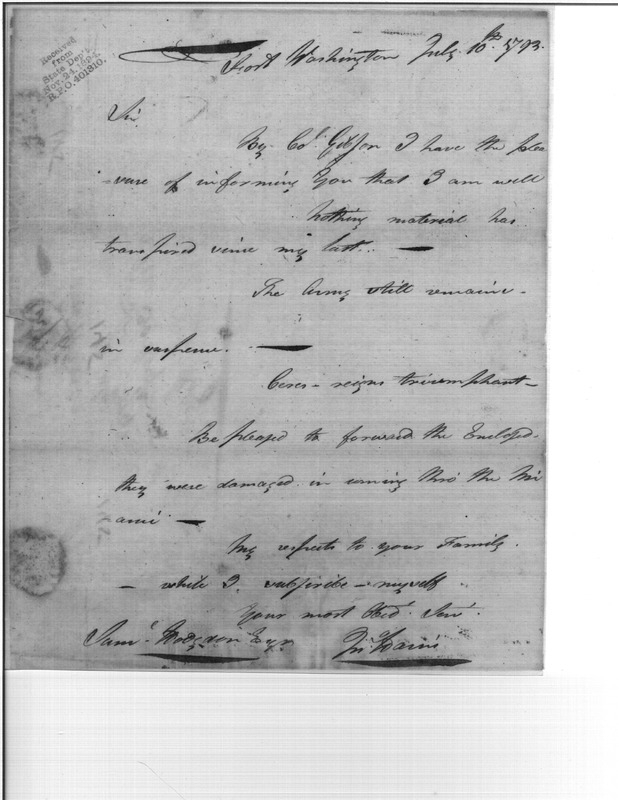 Received
from
State Dep't,
Nov. 24, 1894
R.P.O. 401810.
Fort Washington July 10th 1793.
Sir
By Col. Gibson I have the plea
-sure of informing You that I am well
nothing material has
transpired since my last. —
The Army still remains-
in suspense. —
Ceres - reigns triumphant -
Be pleased to forward the Enclosed.
they were damaged in coming thro' the Mi
ami —
My respects to your Family.
- while I subscribe - myself
Your most Obed. Serv.
Saml. Hodgdon Esqr
Jn Harris